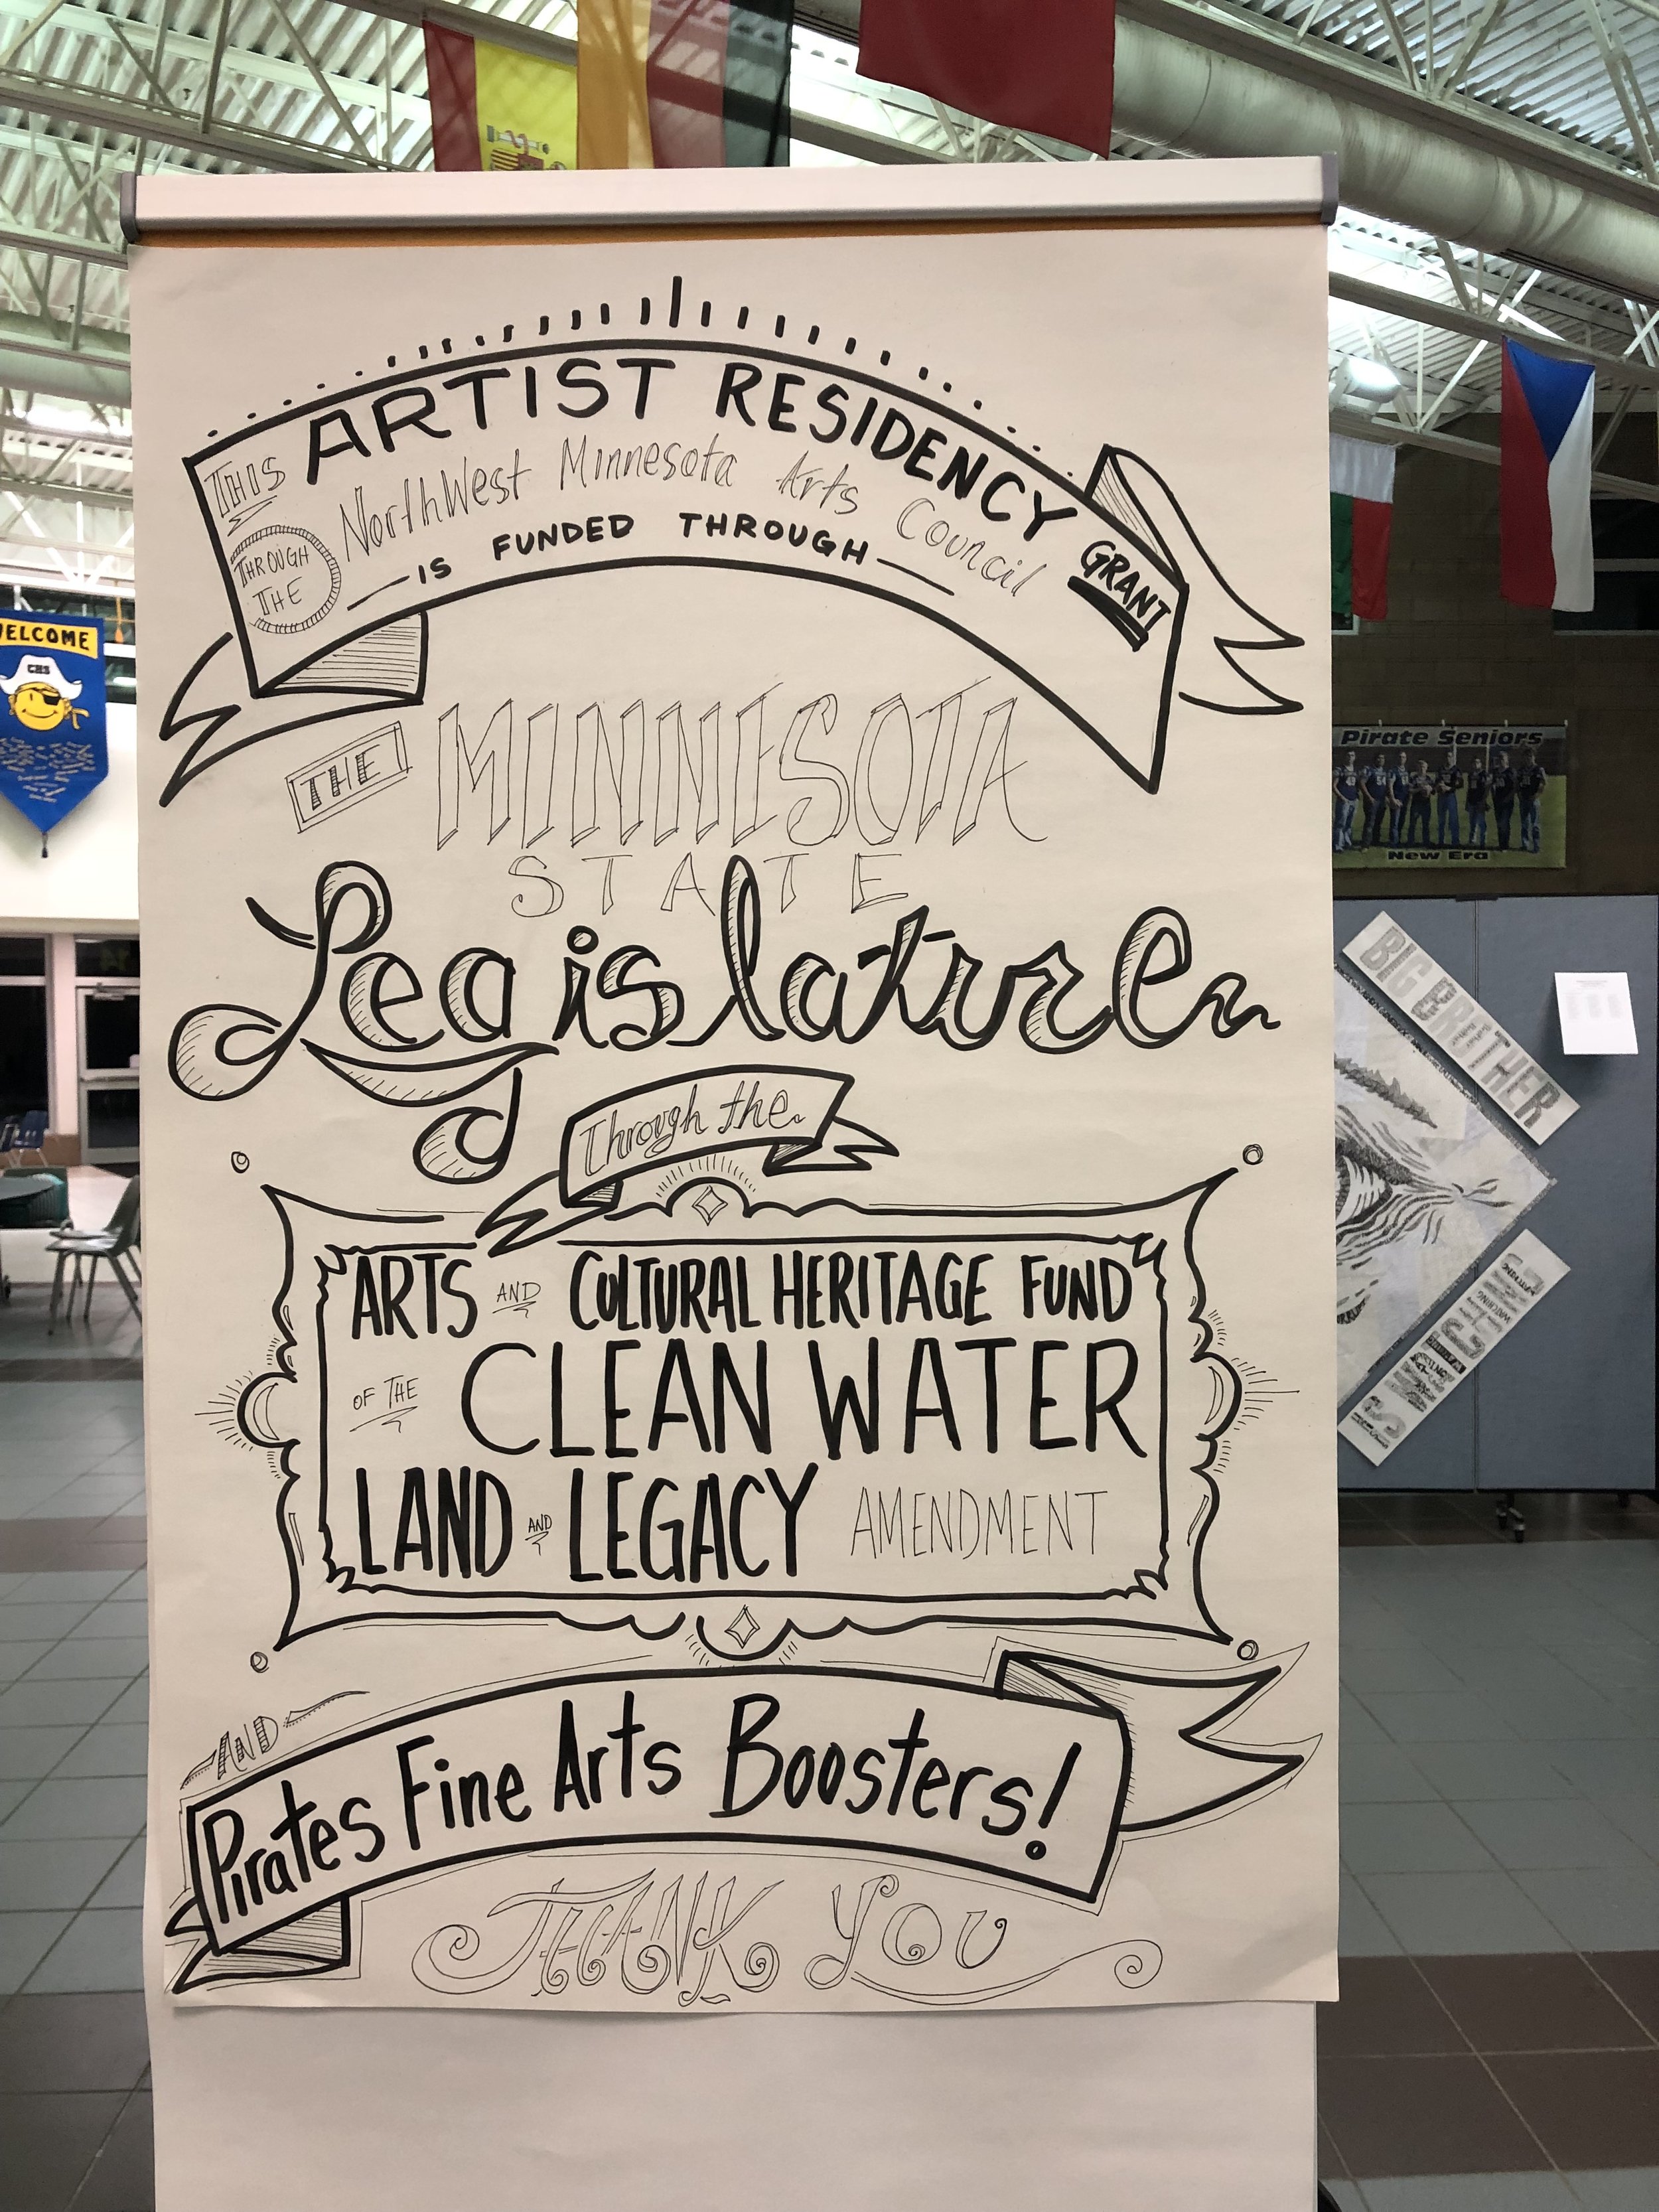 THIS ARTIST RESIDENCY GRANT
THROUGH THE NorthWest Minnesota Arts Council
IS FUNDED THROUGH
THE MINNESOTA
STATE
Legislature
Through the
ARTS AND CULTURAL HERITAGE FUND
OF THE CLEAN WATER
LAND AND LEGACY AMENDMENT
AND
Pirates Fine Arts Boosters!
THANK YOU
WELCOME
CHS
Pirate Seniors
New Era
BIG BROTHER